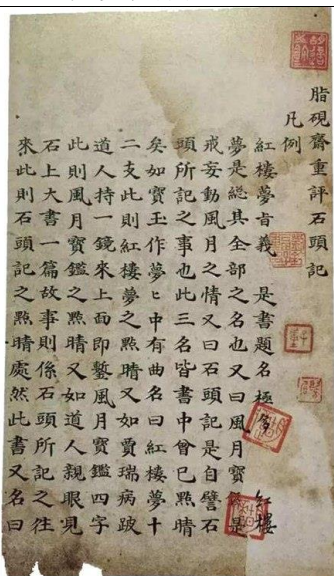 脂硯齋重評石頭記
凡例
紅樓夢旨義　是書題名極多　紅樓
夢是総其全部之名也又曰風月寶鑑是
戒妄動風月之情又曰石頭記是自譬石
頭所記之事也此三名皆書中曾已㸃睛
矣如寶玉作夢〻中有曲名曰紅樓夢十
二支此則紅樓夢之㸃睛又如賈瑞病跛
道人持一鏡來上面即鏨風月寶鑑四字
此則風月寶鑑之㸃睛又如道人親眼見
石上大書一篇故事則係石頭所記之徃
來此則石頭記之㸃睛處然此書又名曰